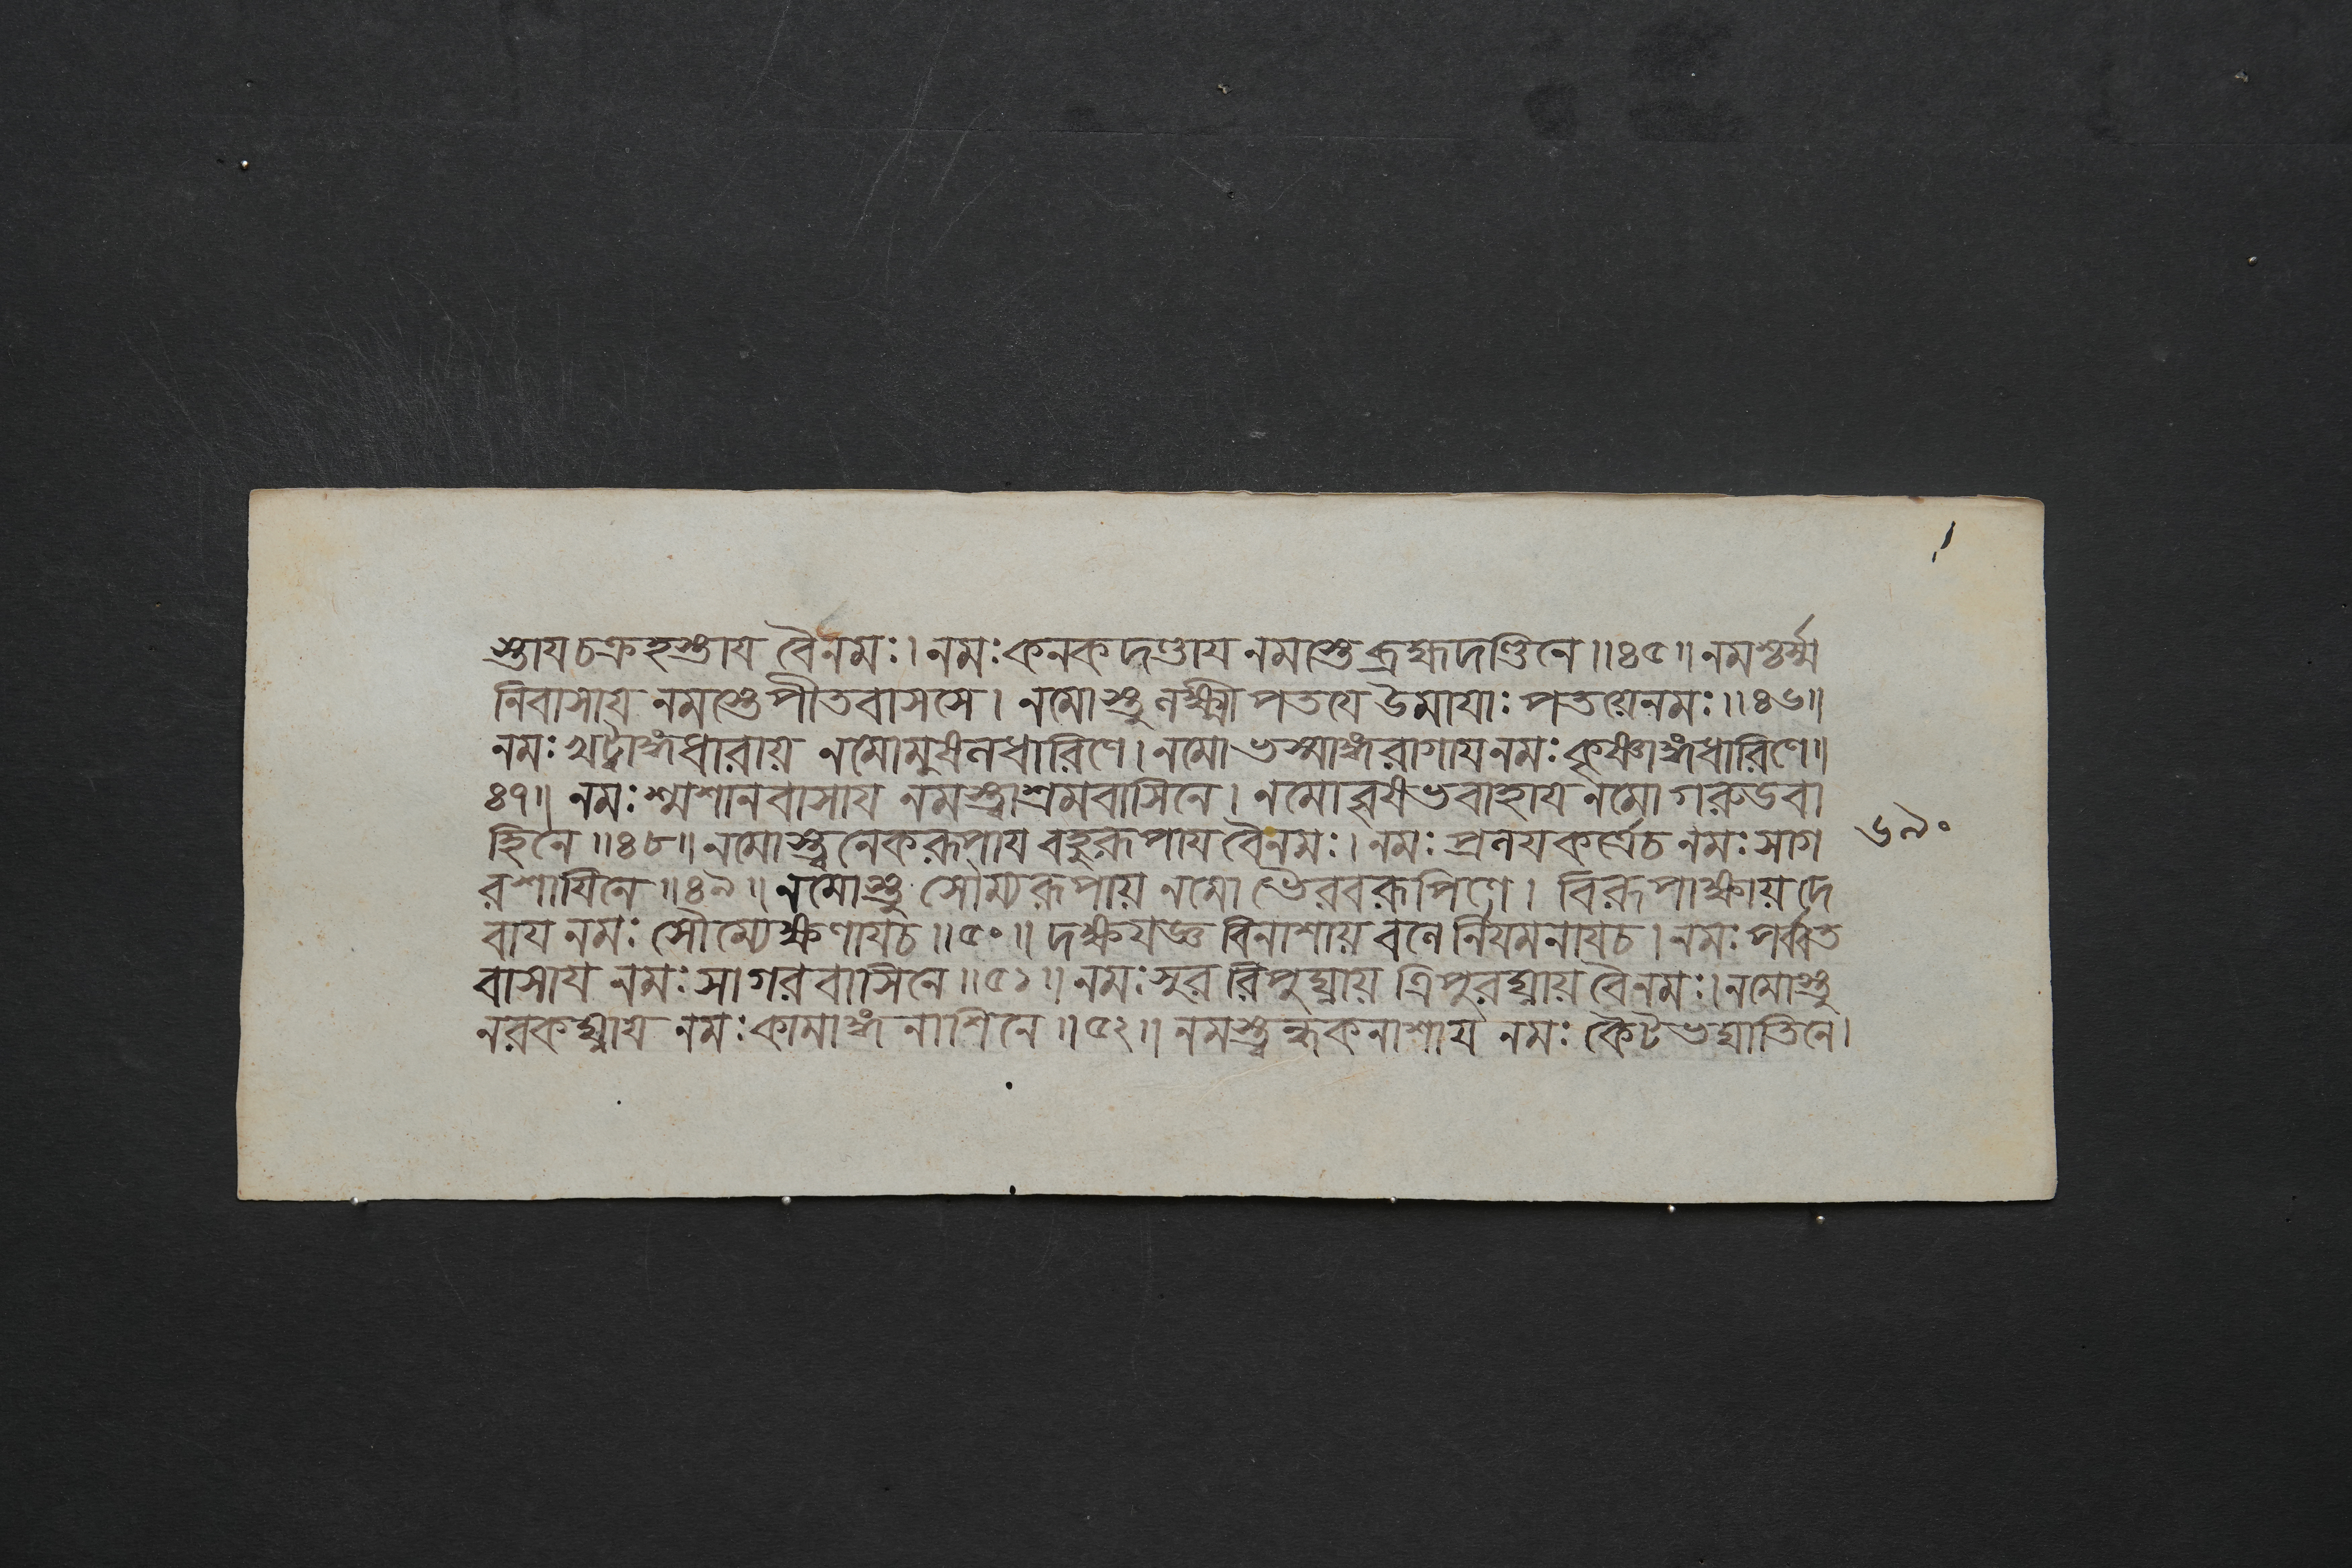 স্তায চক্রহস্তায বৈনমঃ। নমঃ কনক দণ্ডায নমস্তে ব্রহ্মদণ্ডিনে॥৪৫॥ নমশ্চর্ম্ম
নিবাসায নমস্তে পীতবাসসে। নমোস্তু লক্ষ্মী পতযে উমাযাঃ পতয়েনমঃ॥৪৬॥
নমঃ খট্বাঙ্গধারায় নমোমুষলধারিণে। নমো ভস্মাঙ্গরাগাযনমঃ কৃষ্ণাঙ্গধারিণে॥
৪৭॥ নমঃ শ্মশানবাসায নমস্ত্বাশ্রমবাসিনে। নমো বৃষভবাহায নমো গরুডবা
হিনে॥৪৮॥ নমোস্ত্বনেকরূপায বহুরূপায বৈনমঃ। নমঃ প্রলযকর্ত্রেচ নমঃ সাগ
রশাযিনে॥৪৯॥ নমোস্তু সৌম্যরূপায় নমো ভৈরবরূপিণে। বিরূপাক্ষায় দে
বায নমঃ সৌম্যেক্ষণাযচ॥৫০॥ দক্ষযজ্ঞ বিনাশায় বলে র্নিযমনাযচ। নমঃ পর্ব্বত
বাসায নমঃ সাগরবাসিনে॥৫১॥ নমঃ সুররিপুঘ্নায় ত্রিপুরঘ্নায় বৈনমঃ। নমোস্তু
নরকঘ্নায নমঃ কামাঙ্গ নাশিনে॥৫২॥ নমস্ত্বন্ধকনাশায নমঃ কৈটভঘাতিনে।
৬৯০